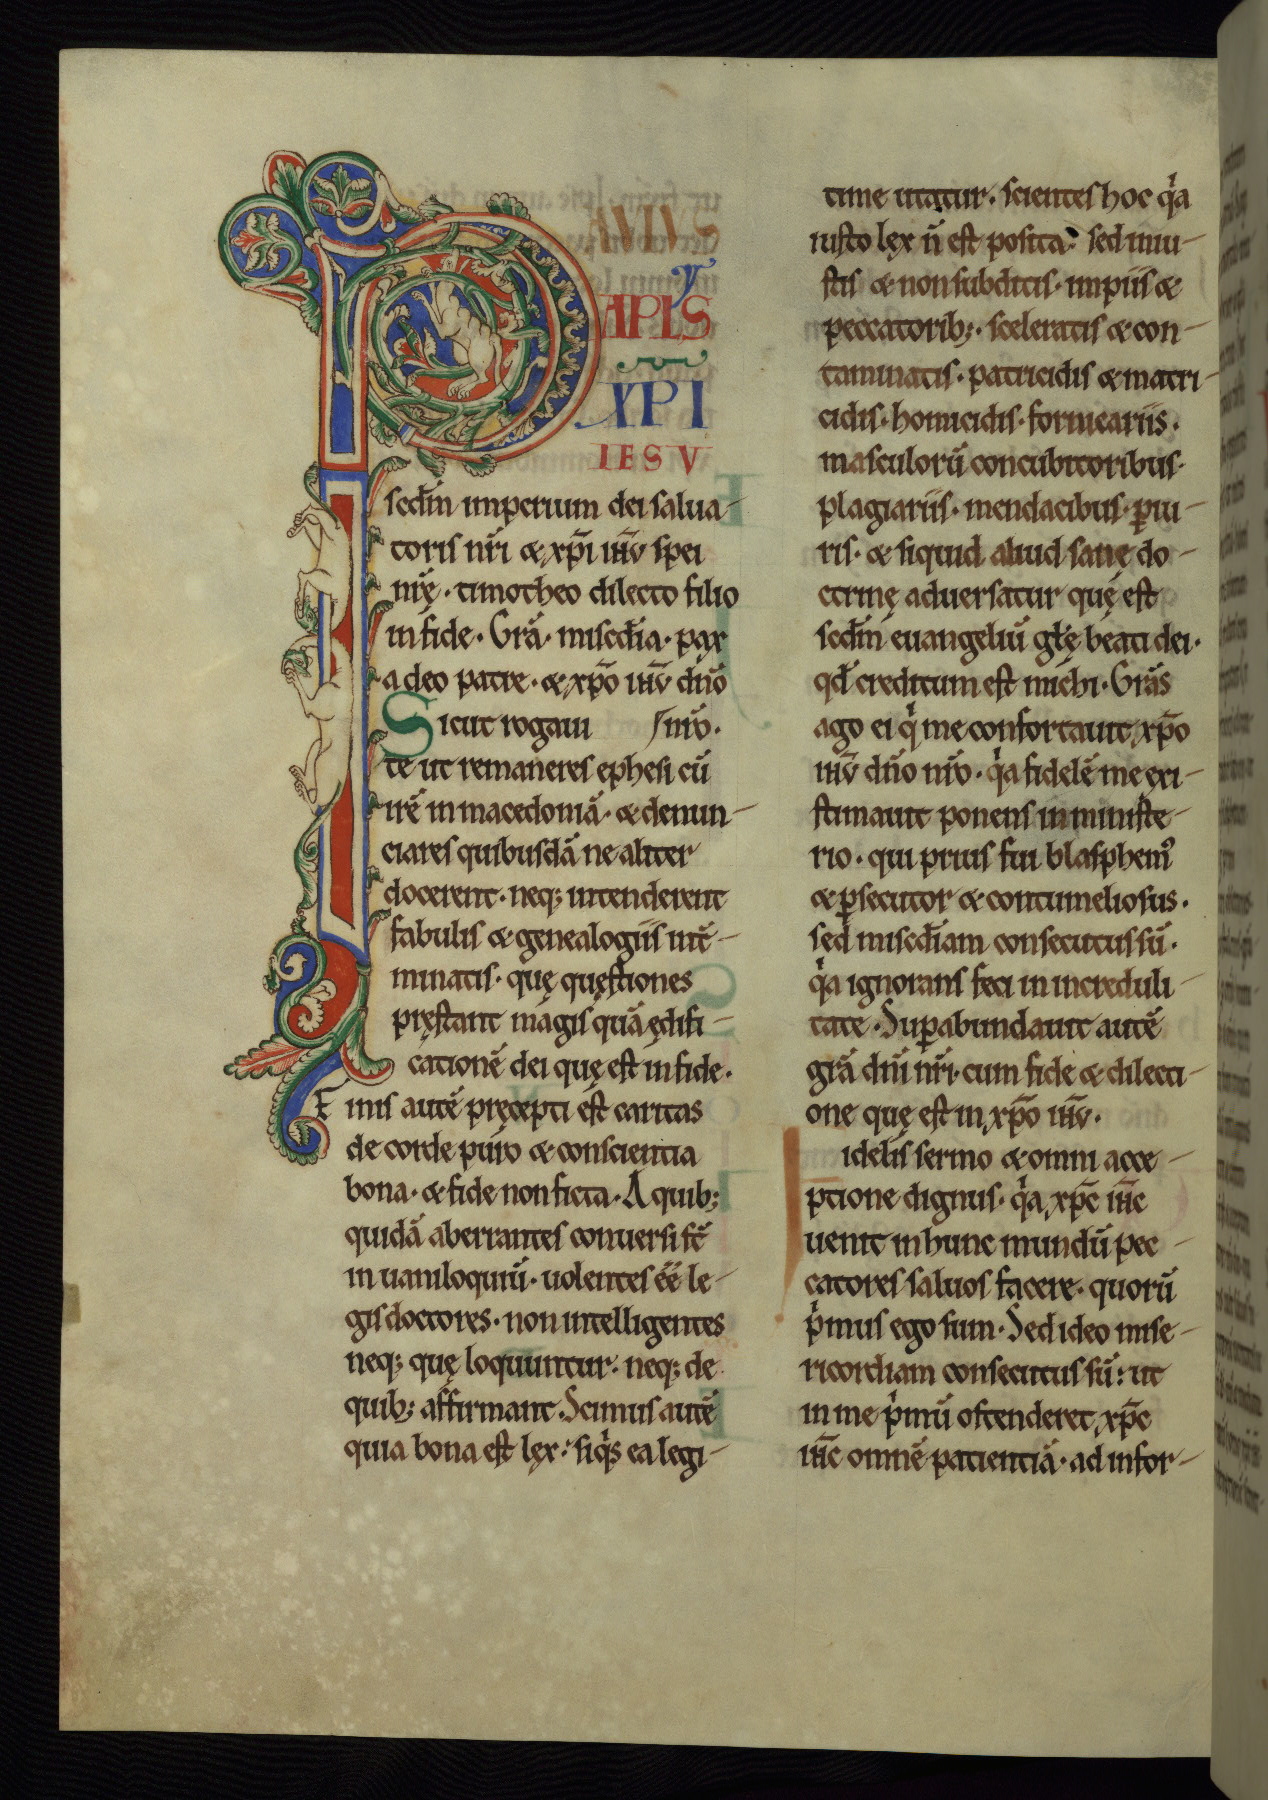 PAVLVS
APLS
XPI
IESV
sedm̄ imperium dei salua-
toris nr̄i & xp̄i ih̄u spei
nr̄ę · timotheo dilecto filio
in fide · Grā · misedīa · pax
a deo patre · & xp̄o ih̄u dn̄o
Sicut rogaui nr̄o ·
te ut remaneres ephesi cū
irē in macedoniā · & denun-
ciares quibusdā ne aliter
docerent · neq; intenderent
fabulis & genealogiis int̄-
minatis · quę quęstiones
pręstant magis quā ędifi-
cationē dei quę est in fide ·
Finis autē pręcepti est caritas
de corde puro & conscientia
bona · & fide non ficta · A quib;
quidā aberrantes conuersi st̄
in uaniloquiū · uolentes ēē le-
gis doctores · non intelligentes
neq; quę loquuntur · neq; de
quib; affirmant · Scimus autē
quia bona est lęx · siq̇s ea legi-
time utatur · scientes hoc q̇a
iusto lęx n̄ est posita · sed iniu-
stis & non subditis · impiis &
peccatorib; · sceleratis & con-
taminatis · patricidis & matri-
cidis · homicidis · fornicariis ·
masculorū concubitoribus ·
plagiariis · mendacibus · p̱iu-
ris · & siquid aliud sanę do-
ctrinę aduersatur quę est
sedm̄ euangeliū glę̄ beati dei ·
qd̄ creditum est michi · Grās
ago ei q̇ me confortauit xp̄o
ih̄u dn̄o nr̄o · q̇a fidelē me exi-
stimauit ponens in ministe-
rio · qui prius fui blasphem᾽
& p̱secutor & contumeliosus ·
sed misedīam consecutus sū ·
q̇a ignorans feci in increduli-
tate · Sup̱abundauit autē
grā dn̄i nr̄i · cum fide & dilecti-
one quę est in xp̄o ih̄u ·
Fidelis sermo & omni acce-
ptione dignus · q̇a xp̄c ih̄c
uenit in hunc mundū pec-
catores saluos facere · quorū
ṗmus ego sum · Sed ideo mise-
ricordiam consecutus sū : ut
in me ṗmū ostenderet xp̄c
ih̄c omnē patientiā · ad infor-